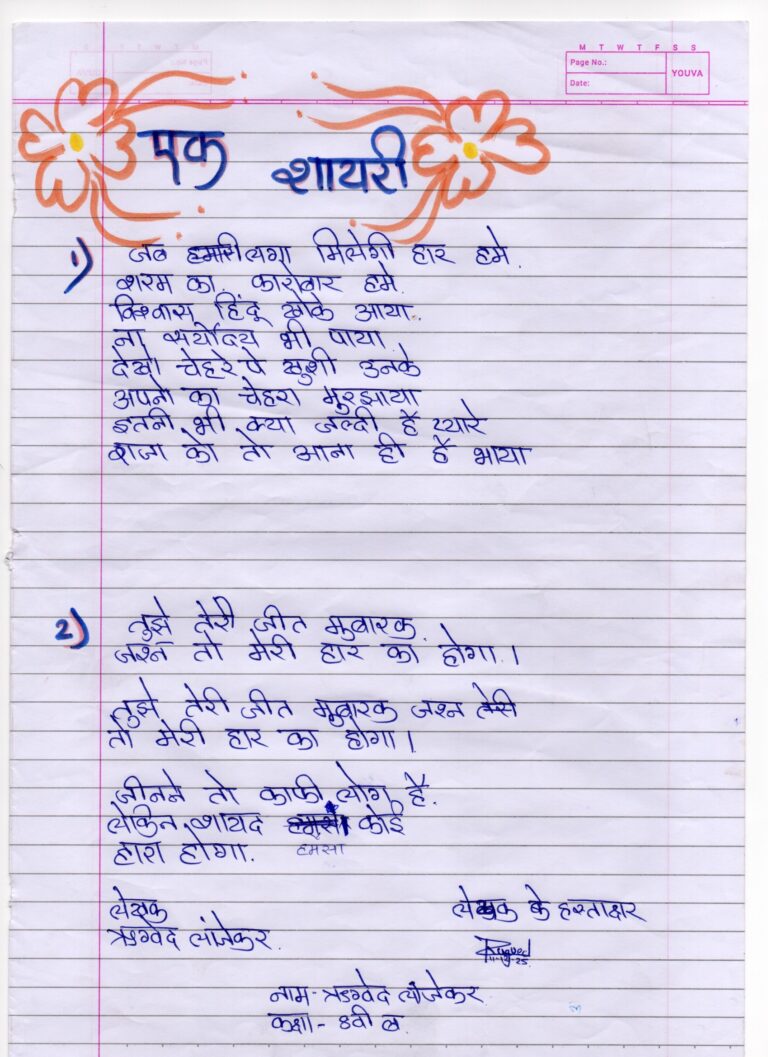 M T W T F S S
Page No.:
Date:
YOUVA
एक शायरी
1) जब लगा मिलेगी हार हमे.
शरम का. कारोबार हमे.
विश्वास हिंदू खोके आया.
ना सर्योदय भी पाया.
देखो चेहरे पे खुशी उनके
अपनो का चेहरा मुरझाया
इतनी भी क्या जल्दी है प्यारे
राजा को तो आना ही है भाया
2) तुझे तेरी जीत मुबारक.
जश्न तो मेरी हार का होगा.।
तुझे तेरी जीत मुबारक जश्न
तो मेरी हार का होगा।
जीनने तो काफी लोग है.
लेकिन शायद कोई
हमसा
हारा होगा.
लेखक
लेखक के हस्ताक्षर
ऋग्वेद लांजेकर.
नाम- ऋग्वेद लांजेकर.
कक्षा- 8वी ब.